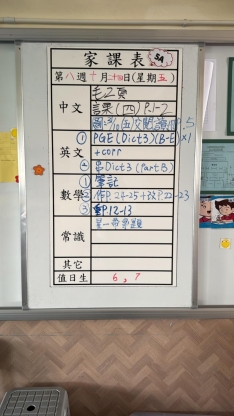 家課表 5A
第八週十月二十四日(星期五)
中文
毛2頁
(四)P.1-2
英文
① PGE (Dict3)(B-E)×1
+corr
② 串Dict3 (Part B)
數學
① 筆記
② P.24-25 + P.22-23
③ P.12-13
常識
星一帶常識
其它
值日生 6, 7